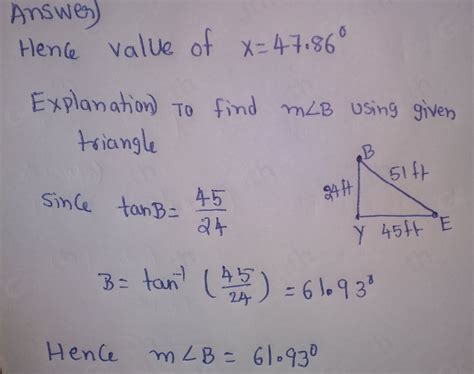 Answer)
Hence value of x=47.86°
Explanation) To find m∠B using given
triangle
B
24ft
51ft
Y
45ft
E
since tanB= 45/24
B= tan⁻¹ (45/24) = 61.93°
Hence m∠B = 61.93°